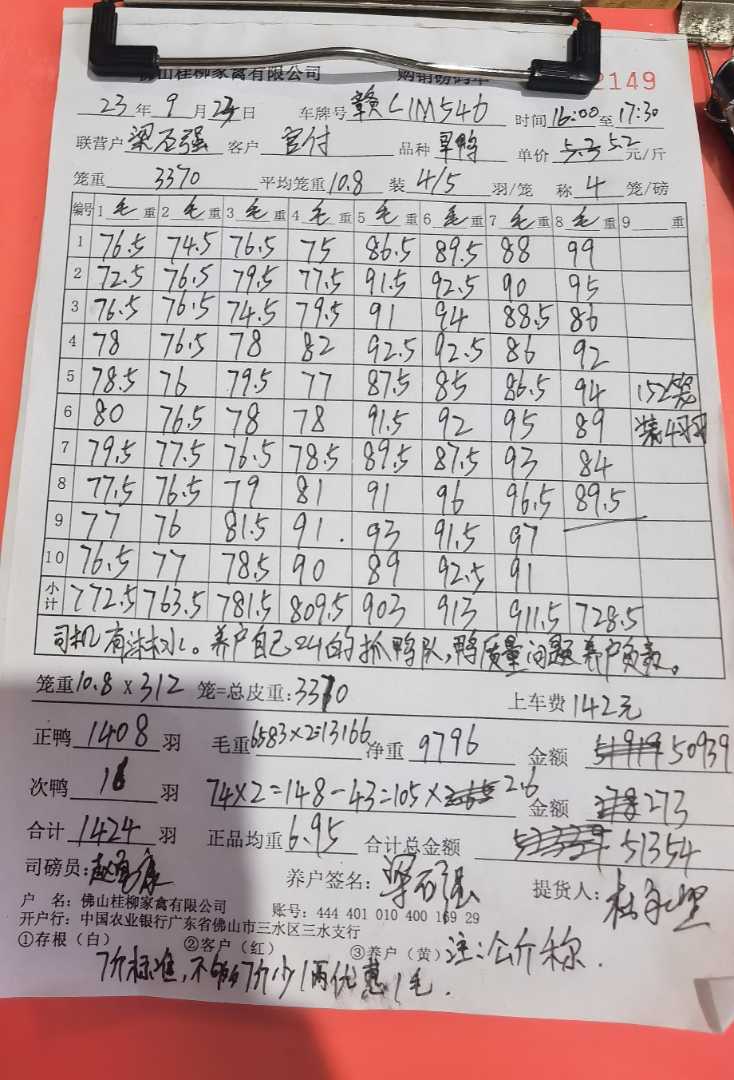 佛山桂柳家禽有限公司 购销磅码单 2149
23年9月23日 车牌号 赣L1M546 时间16:00至17:30
联营户 梁石强 客户 官付 品种 旱鸭 单价 5.3 5.2 元/斤
笼重 3370 平均笼重10.8 装 4/5 羽/笼 称 4 笼/磅
编号 1 毛 重 2 毛 重 3 毛 重 4 毛 重 5 毛 重 6 毛 重 7 毛 重 8 毛 重 9 重
1 76.5 74.5 76.5 75 86.5 89.5 88 99
2 72.5 76.5 79.5 77.5 91.5 92.5 90 95
3 76.5 76.5 74.5 79.5 91 94 88.5 86
4 78 76.5 78 82 92.5 92.5 86 92
5 78.5 76 79.5 77 87.5 85 86.5 94 152笼
6 80 76.5 78 78 91.5 92 95 89 装4羽
7 79.5 77.5 76.5 78.5 89.5 87.5 93 84
8 77.5 76.5 79 81 91 96 96.5 89.5
9 77 76 81.5 91. 93 91.5 97
10 76.5 77 78.5 90 89 92.5 91
小计 772.5 763.5 781.5 809.5 903 913 911.5 728.5
司机有淋水。养户自己叫的抓鸭队,鸭质量问题养户负责。
笼重10.8×312 笼=总皮重:3370 上车费 142元
正鸭 1408 羽 毛重6583×2=13166 净重 9796 金额 51919 50939
次鸭 16 羽 74×2=148-43=105× 2.6 金额 278 273
合计 1424 羽 正品均重 6.95 合计总金额 51354
司磅员: 养户签名: 梁石强 提货人:
户 名: 佛山桂柳家禽有限公司 账号: 444 401 010 400 169 29
开户行: 中国农业银行广东省佛山市三水区三水支行
①存根(白) ②客户(红) ③养户(黄) 注:公斤称.
7斤标准,不够7斤少1两优惠1毛.